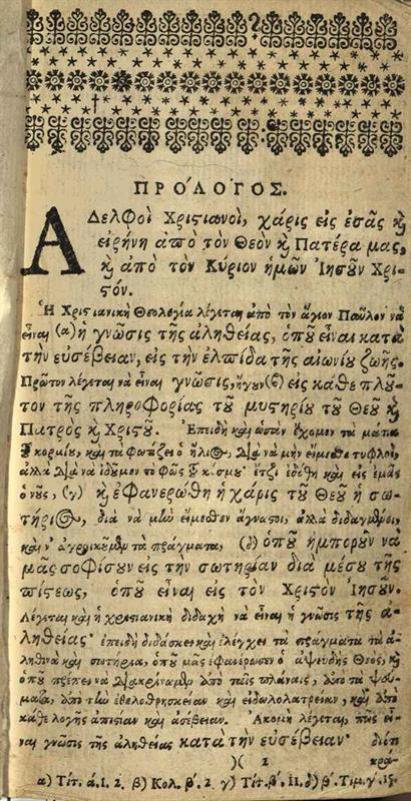 ΠΡΌΛΟΓΟΣ.
ΑΔελφοὶ Χριστιανοὶ, χάρις εἰς ἐσᾶς ϗ
εἰρήνη ἀπὸ τὸν Θεὸν ϗ Πατέρα μας,
ϗ ἀπὸ τὸν Κύριον ἡμῶν Ἰησοῦν Χρι-
στόν.
Ἡ Χριστιανικὴ Θεολογία λέγεται ἀπὸ τὸν ἅγιον Παῦλον νὰ
εἶναι (α) ἡ γνῶσις τῆς ἀληθείας, ὁποῦ εἶναι κατὰ
τὴν εὐσέβειαν, εἰς τὴν ἐλπίδα τῆς αἰωνίου ζωῆς.
Πρῶτον λέγεται νὰ εἶναι γνῶσις, ἤγουν (β) εἰς κάθε πλοῦ-
τον τῆς πληροφορίας τοῦ μυστηρίου τοῦ Θεοῦ ϗ
Πατρὸς ϗ Χριστοῦ. Ἐπειδὴ καὶ ὡσὰν ἔχομεν τὰ μάτια
τοῦ κορμίου, καὶ τὰ φωτίζει ὁ ἥλιος, διὰ νὰ μὴν εἴμεσθε τυφλοὶ,
ἀλλὰ διὰ νὰ ἰδοῦμεν τὸ φῶς τοῦ κόσμου· ἔτζι ἐδόθη καὶ εἰς ἐμᾶς
ὁ νοῦς, (γ) ϗ ἐφανερώθη ἡ χάρις τοῦ Θεοῦ ἡ σω-
τήριος, διὰ νὰ μὴν εἴμεσθεν ἄγνωστοι, ἀλλὰ διδαγμένοι,
καὶ ν' ἀγροικοῦμεν τὰ πράγματα, (δ) ὁποῦ ἠμποροῦν νὰ
μᾶς σοφίσουν εἰς τὴν σωτηρίαν διὰ μέσου τῆς
πίστεως, ὁποῦ εἶναι εἰς τὸν Χριστὸν Ἰησοῦν.
Λέγεται καὶ ἡ χριστιανικὴ διδαχὴ νὰ εἶναι ἡ γνῶσις τῆς ἀ-
ληθείας· ἐπειδὴ διδάσκει καὶ ἐλέγχει τὰ πράγματα τὰ ἀ-
ληθινὰ καὶ σωτήρια, ὁποῦ μᾶς ἐφανέρωσεν ὁ ἀψευδὴς Θεὸς, ϗ
ὁποῦ πρέπει νὰ διακρίνωμεν ἀπὸ ταῖς πλάναις, ἀπὸ τὰ ψεύ-
ματα, ἀπὸ τὴν ἐθελοθρησκείαν καὶ εἰδωλολατρείαν, καὶ ἀπὸ
κάθε λογῆς ἀπιστίαν καὶ ἀσέβειαν. Ἀκομὴ λέγεται, πῶς εἶ-
ναι γνῶσις τῆς ἀληθείας κατὰ τὴν εὐσέβειαν· διότι
)( 2 κρα-
α) Τίτ. ά. 1. 2. β) Κολ. β΄. 2 γ) Τίτ. β΄. 11. δ) β΄. Τιμ. γ΄. 15.